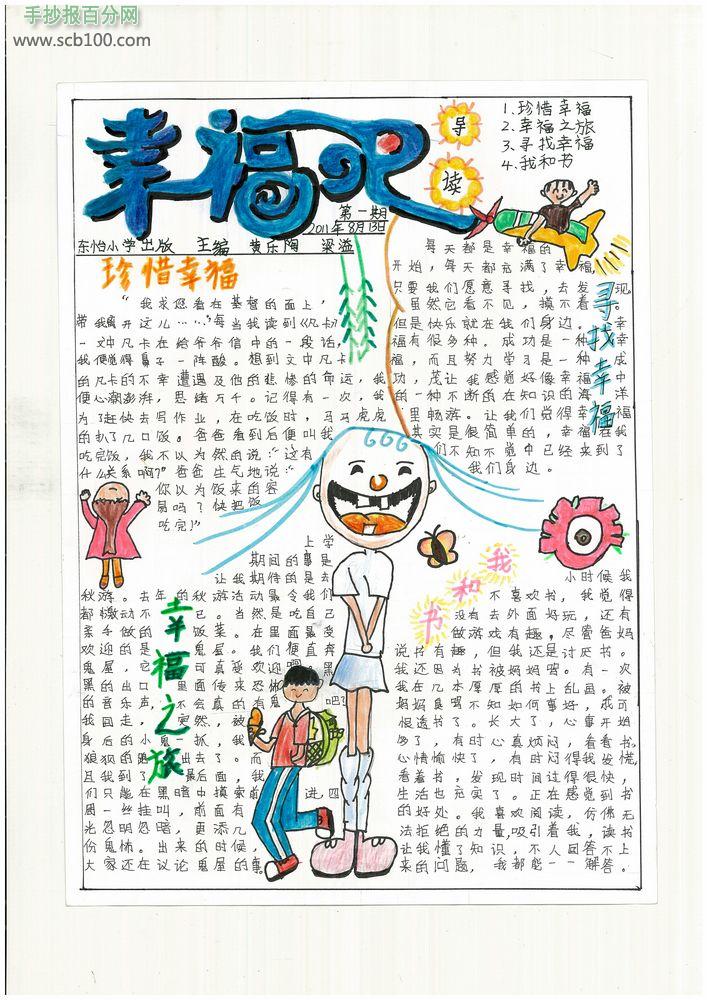 手抄报百分网
www.scb100.com
幸福吧
导
读
1.珍惜幸福
2.幸福之旅
3.寻找幸福
4.我和书
第一期
2011年8月13日
东怡小学出版 主编 黄乐陶 梁溢
珍惜幸福
“我求您看在基督的面上,
带我离开这儿……”每当我读到《凡卡》
一文中凡卡在给爷爷信中的一段话,
我便觉得鼻子一阵酸。想到文中凡卡
的凡卡的不幸遭遇及他的悲惨的命运,我
便心潮澎湃,思绪万千。记得有一次,我
为了赶快去写作业,在吃饭时,马马虎虎
的扒了几口饭。爸爸看到后便叫我
吃完饭,我不以为然的说:“这有
什么关系啊?”爸爸生气地说:“
你以为饭来的容
易吗?快把饭
吃完!”
寻找幸福
每天都是幸福的
开始,每天都充满了幸福,
只要我们愿意寻找,去发现
虽然它看不见,摸不着。
但是快乐就在我们身边。幸
福有很多种。成功是一种幸
福,而且努力学习是一种成
功,茂让我感觉好像幸福中
的一种不断的在知识的海洋
里畅游。让我们觉得幸福福
其实是很简单的,幸福在我
们不知不觉中已经来到了
我们身边。
幸福之旅
上学
期间的事是
让我期待的是去
秋游。去年的秋游活动最令我们
都激动不已。当然是吃自己
亲手做的饭菜。在里面最受
欢迎的是鬼屋。我们便直奔
鬼屋,它可真是欢迎啊。黑
黑的出口里面传来恐怖
的音乐声,不会真的有鬼吧?
我回走,突然,被
身后的小鬼一抓,我
狼狈的跑出去了。而
且我到了最后面,我
们只能在黑暗中摸索前进,四
周一丝挂叫,前面有
光忽明忽暗,更添几
份鬼怖。出来的时候,
大家还在议论鬼屋的事。
我和书
小时候我
不喜欢书,我觉得
没有去外面好玩,还有
做游戏有趣,尽管爸妈
说书有趣,但我还是讨厌书。
我还因为书被妈妈骂。有一次
我在几本厚厚的书上乱画。被
妈妈臭骂不知如何事好,我可
恨透书了。长大了,心事开始
多了,有时心真烦闷,看看书,
心情愉快了,有时闷得我发慌,
看着书,发现时间过得很快,
生活也充实了。正在感觉到书
的好处。我喜欢阅读,仿佛无
法拒绝的力量,吸引着我,读书
让我懂了知识,不人回答不上
来的问题,我都能一一解答。